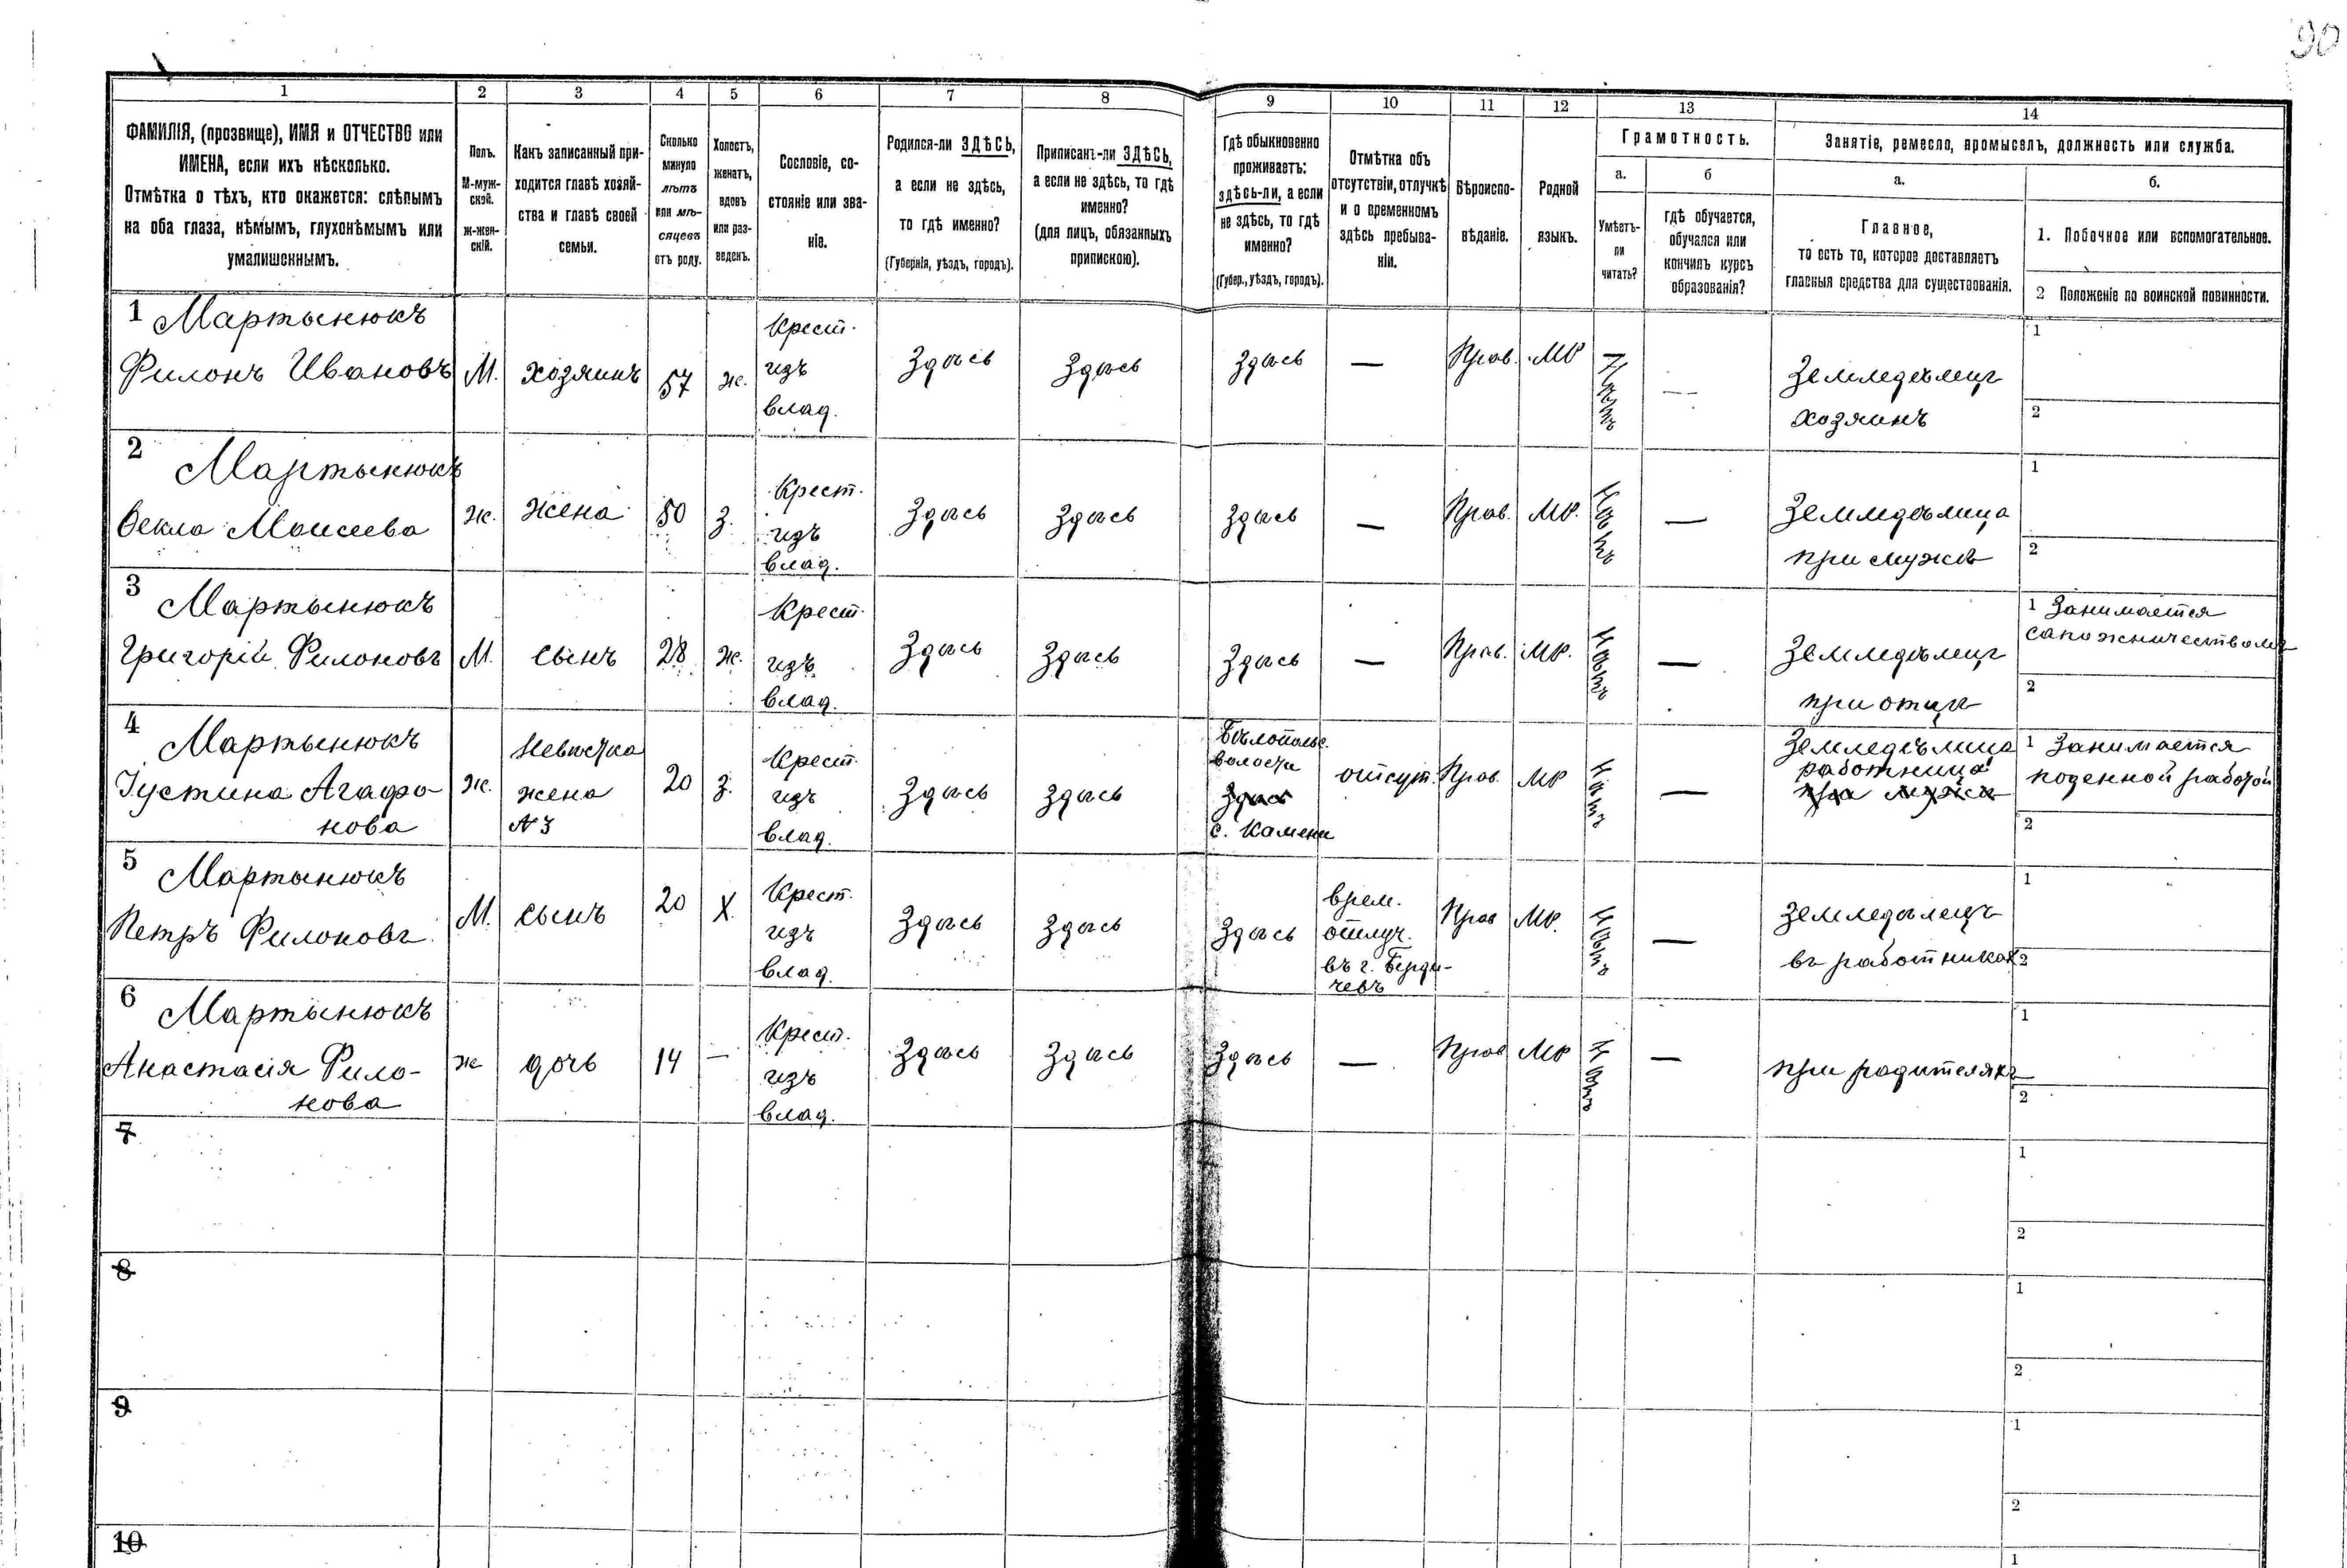 90
1 2 3 4 5 6 7 8 9 10 11 12 13 14
ФАМИЛІЯ, (прозвище), ИМЯ и ОТЧЕСТВО или
ИМЕНА, если ихъ нѣсколько.
Отмѣтка о тѣхъ, кто окажется: слѣпымъ
на оба глаза, нѣмымъ, глухонѣмымъ или
умалишеннымъ.
Полъ.
М-муж-
ской.
Ж-жен-
скій.
Какъ записанный при-
ходится главѣ хозяй-
ства и главѣ своей
семьи.
Сколько
минуло
лѣтъ
или мѣ-
сяцевъ
отъ роду.
Холостъ,
женатъ,
вдовъ
или раз-
веденъ.
Сословіе, со-
стояніе или зва-
ніе.
Родился-ли ЗДѢСЬ,
а если не здѣсь,
то гдѣ именно?
(Губернія, уѣздъ, городъ).
Приписанъ-ли ЗДѢСЬ,
а если не здѣсь, то гдѣ
именно?
(для лицъ, обязанныхъ
припискою).
Гдѣ обыкновенно
проживаетъ:
здѣсь-ли, а если
не здѣсь, то гдѣ
именно?
(Губер., уѣздъ, городъ).
Отмѣтка объ
отсутствіи, отлучкѣ
и о временномъ
здѣсь пребыва-
ніи.
Вѣроиспо-
вѣданіе.
Родной
языкъ.
Грамотность.
а.
Умѣетъ-
ли
читать?
б
гдѣ обучается,
обучался или
кончилъ курсъ
образованія?
Занятіе, ремесло, промыселъ, должность или служба.
а.
Главное,
то есть то, которое доставляетъ
главныя средства для существованія.
б.
1. Побочное или вспомогательное.
2 Положеніе по воинской повинности.
1 Мартынюкъ
Филонъ Ивановъ
М.
хозяинъ
57
ж.
Крест.
изъ
влад.
Здѣсь
Здѣсь
Здѣсь
—
Прав.
МР
Нѣтъ
—
Земледѣлец
хозяинъ
1
2
2 Мартынюкъ
Ѳекла Моисеева
ж.
жена
50
з.
Крест.
изъ
влад.
Здѣсь
Здѣсь
Здѣсь
—
Прав.
МР.
Нѣтъ
—
Земледѣлица
при мужѣ
1
2
3 Мартынюкъ
Григорій Филоновъ
М.
сынъ
28
ж.
Крест.
изъ
влад.
Здѣсь
Здѣсь
Здѣсь
—
Прав.
МР.
Нѣтъ
—
Земледѣлец
при отцѣ
1 Занимается
сапожничествомъ
2
4 Мартынюкъ
Іустина Агафо-
нова
ж.
Невѣстка
жена
№ 3
20
з.
Крест.
изъ
влад.
Здѣсь
Здѣсь
Бѣлопольс.
волости
Здѣсь
с. Камени
отсут.
Прав
МР
Нѣтъ
—
Земледѣлица
работница
при мужѣ
1 Занимается
поденной работой
2
5 Мартынюкъ
Петръ Филоновъ
М.
сынъ
20
Х.
Крест.
изъ
влад.
Здѣсь
Здѣсь
Здѣсь
врем.
отлуч.
въ г. Берди-
чевъ
Прав
МР.
Нѣтъ
—
Земледѣлецъ
въ работникахъ
1
2
6 Мартынюкъ
Анастасія Фило-
нова
ж
дочь
14
—
Крест.
изъ
влад.
Здѣсь
Здѣсь
Здѣсь
—
Прав
МР
Нѣтъ
—
при родителяхъ
1
2
7
1
2
8
1
2
9
1
2
10
1